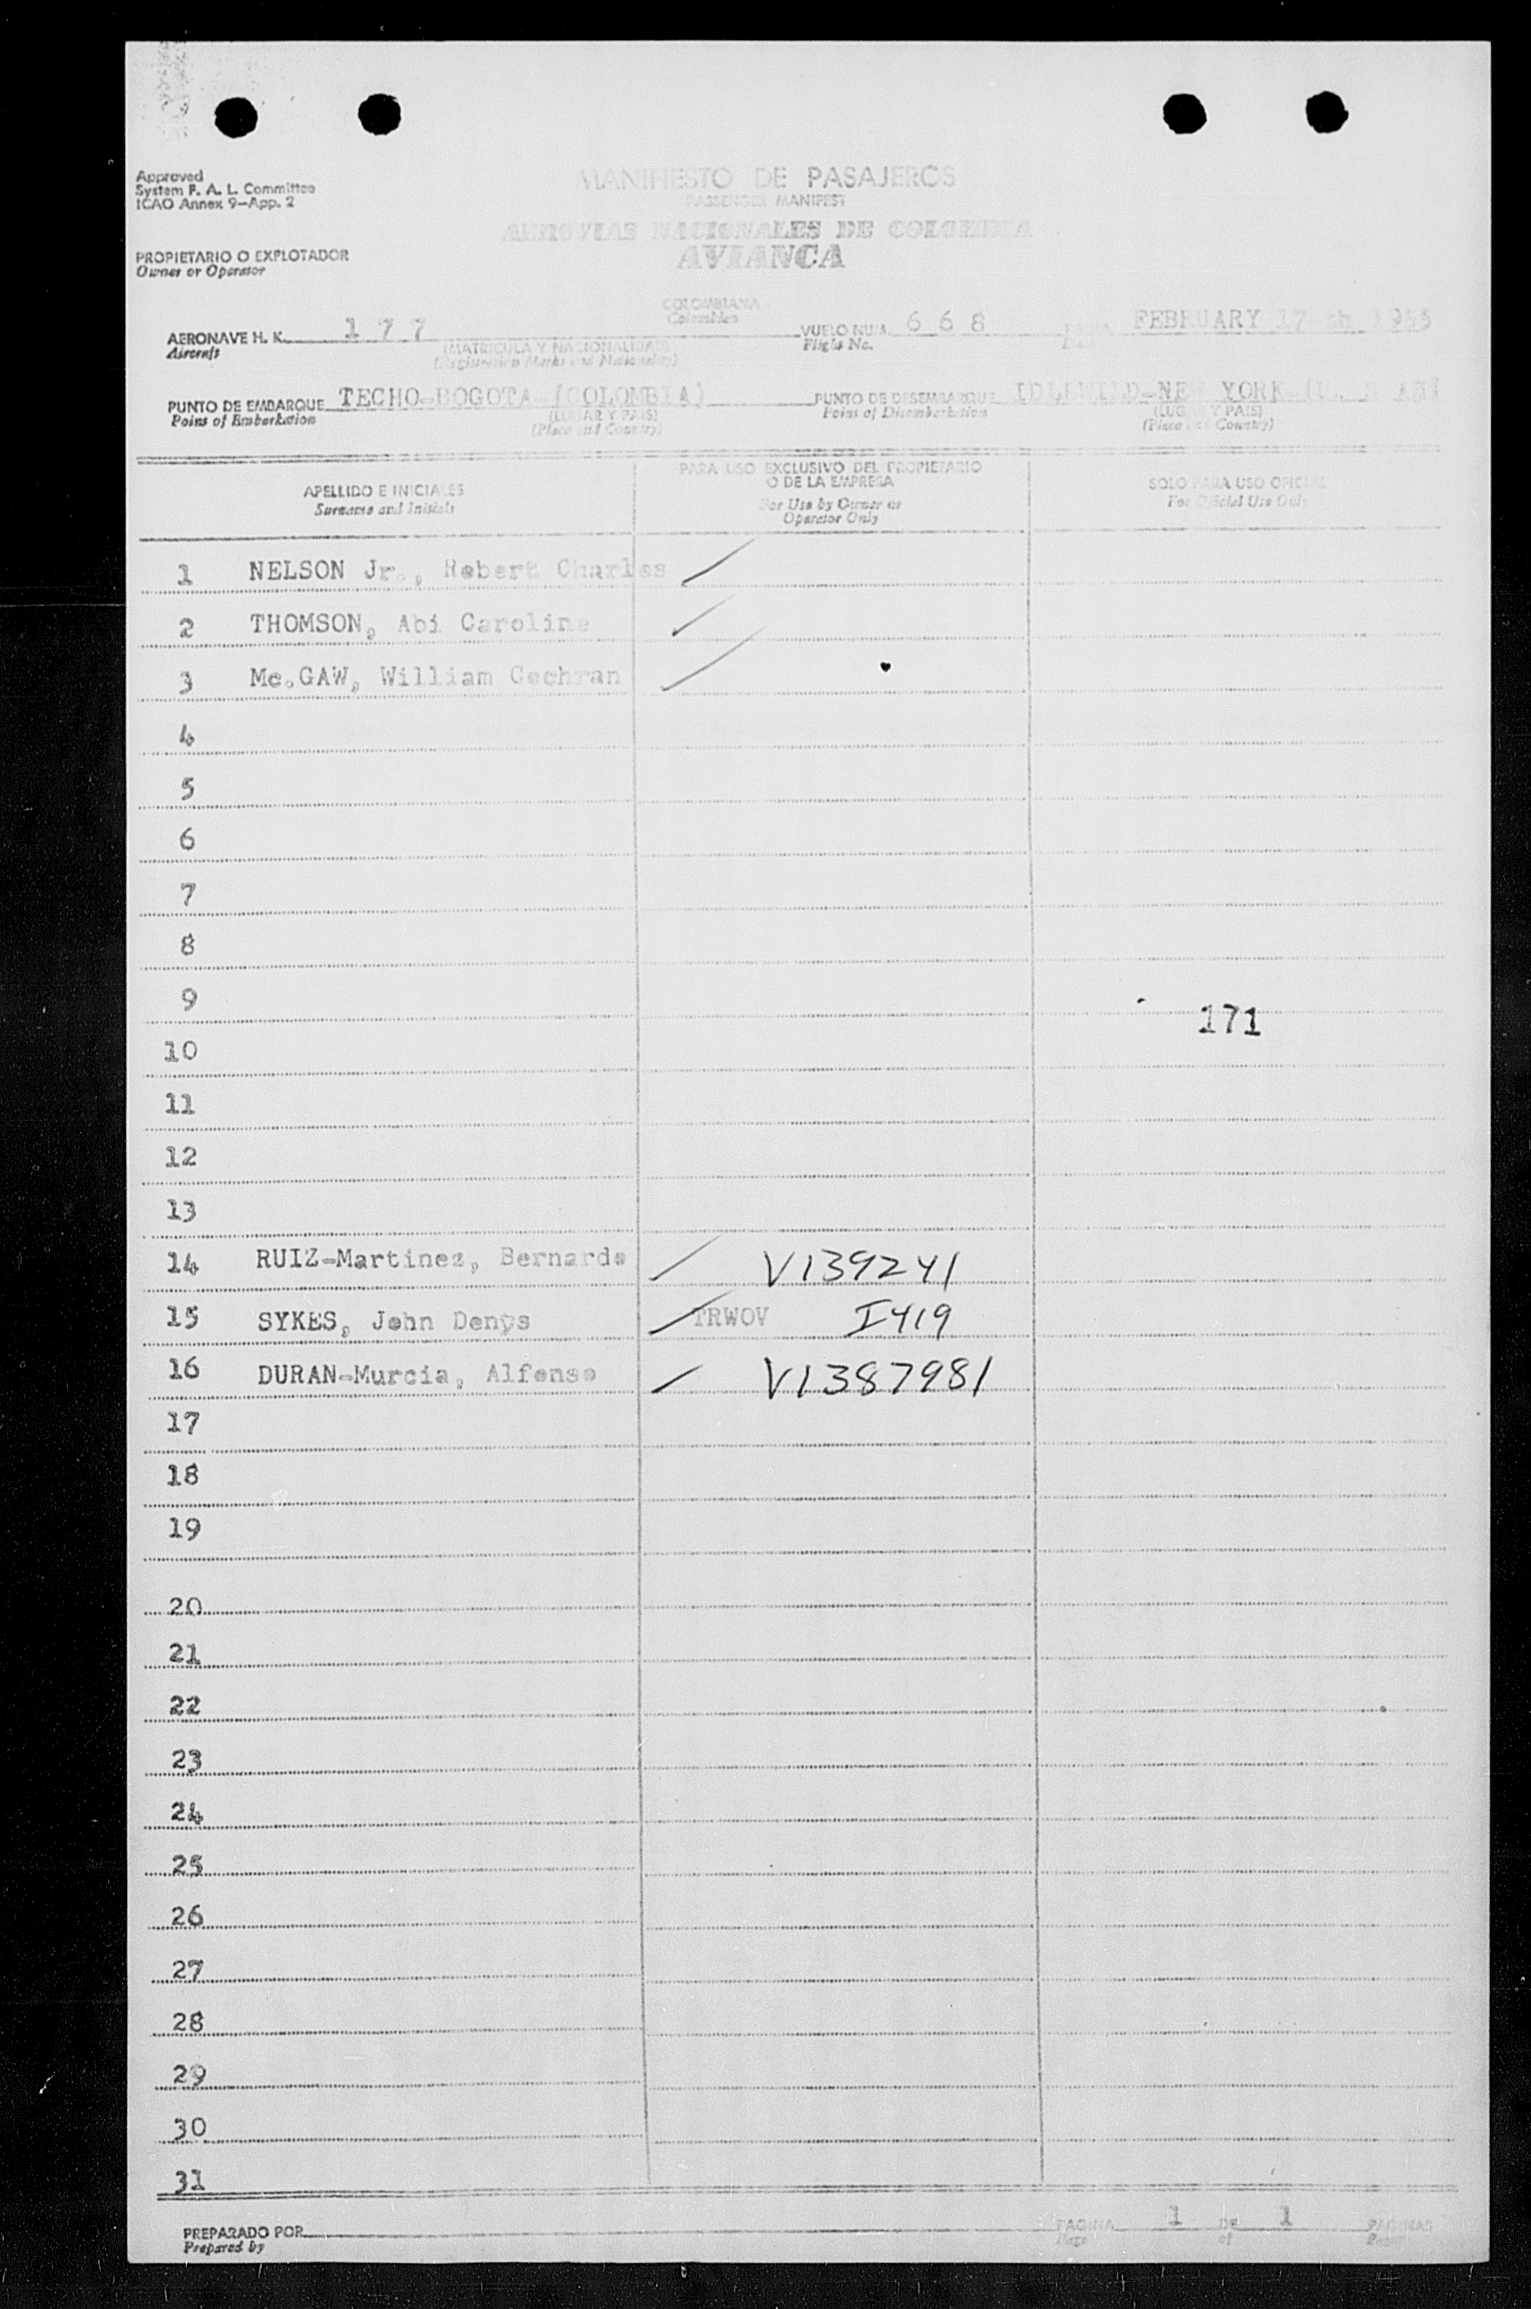 Approved
System F. A. L. Committee
ICAO Annex 9-App. 2
MANIFIESTO DE PASAJEROS
PASSENGER MANIFEST
AEROVIAS NACIONALES DE COLOMBIA
AVIANCA
PROPIETARIO O EXPLOTADOR
Owner or Operator
COLOMBIANA
Colombian
AERONAVE H. K. 1 7 7 VUELO NUM. 6 6 8 FEBRUARY 17th 1955
Aircraft (MATRICULA Y NACIONALIDAD) Flight No.
(Registration Marks and Nationality)
PUNTO DE EMBARQUE TECHO-BOGOTA (COLOMBIA) PUNTO DE DESEMBARQUE IDLEWILD-NEW YORK
Point of Embarkation (LUGAR Y PAIS) Point of Disembarkation (LUGAR Y PAIS)
(Place and Country) (Place and Country)
APELLIDO E INICIALES
Surname and Initials
PARA USO EXCLUSIVO DEL PROPIETARIO
O DE LA EMPRESA
For Use by Owner or
Operator Only
SOLO PARA USO OFICIAL
For Official Use Only
1 NELSON Jr., Robert Charles
2 THOMSON, Abi Caroline
3 Mc.GAW, William Cochran
4
5
6
7
8
9
171
10
11
12
13
14 RUIZ-Martinez, Bernardo V139241
15 SYKES, John Denys TRWOV I419
16 DURAN-Murcia, Alfonso V1387981
17
18
19
20
21
22
23
24
25
26
27
28
29
30
31
PREPARADO POR PAGINA 1 DE 1 PAGINAS
Prepared by Page of